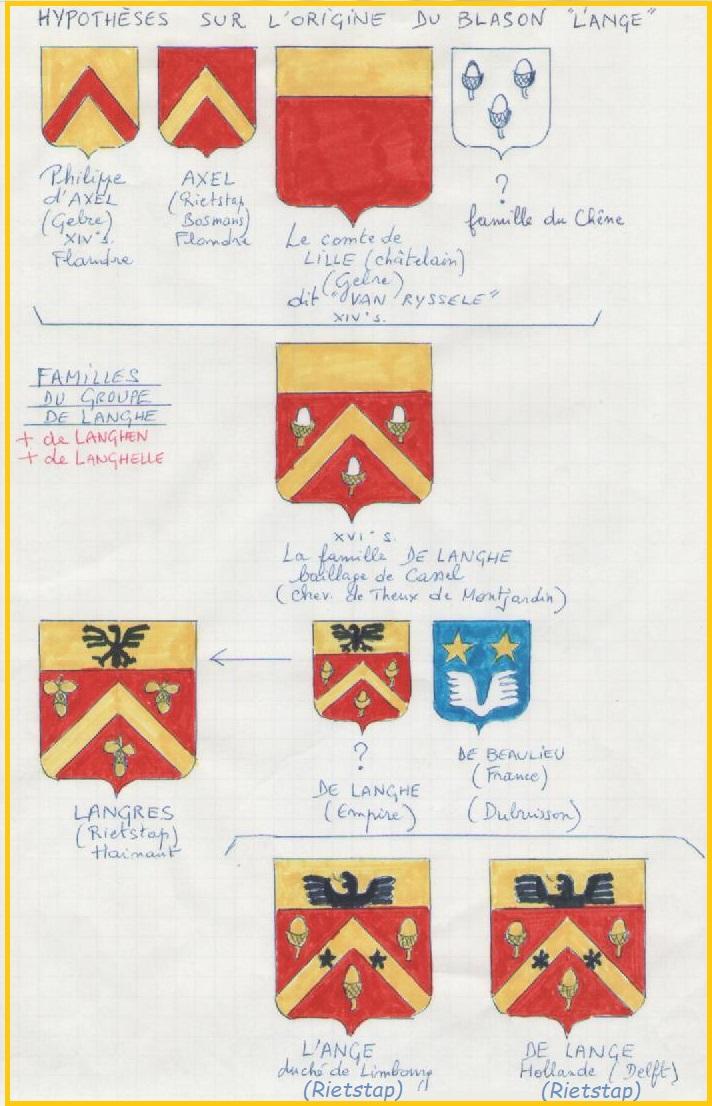 HYPOTHÈSES SUR L'ORIGINE DU BLASON "L'ANGE"
Philippe
d'AXEL
(Gelre)
XIV's.
Flandre
AXEL
(Rietstap
Bosmans)
Flandre
Le comte de
LILLE (châtelain)
(Gelre)
dit "VAN RYSSELE"
XIV's.
?
famille du Chêne
FAMILLES
DU GROUPE
DE LANGHE
+ de LANGHEN
+ de LANGHELLE
XVI's.
La famille DE LANGHE
baillage de Cassel
(chev. de Theux de Montjardin)
LANGRES
(Rietstap)
Hainaut
?
DE LANGHE
(Empire)
DE BEAULIEU
(France)
(Dubuisson)
L'ANGE
duché de Limbourg
(Rietstap)
DE LANGE
Hollande (Delft)
(Rietstap)